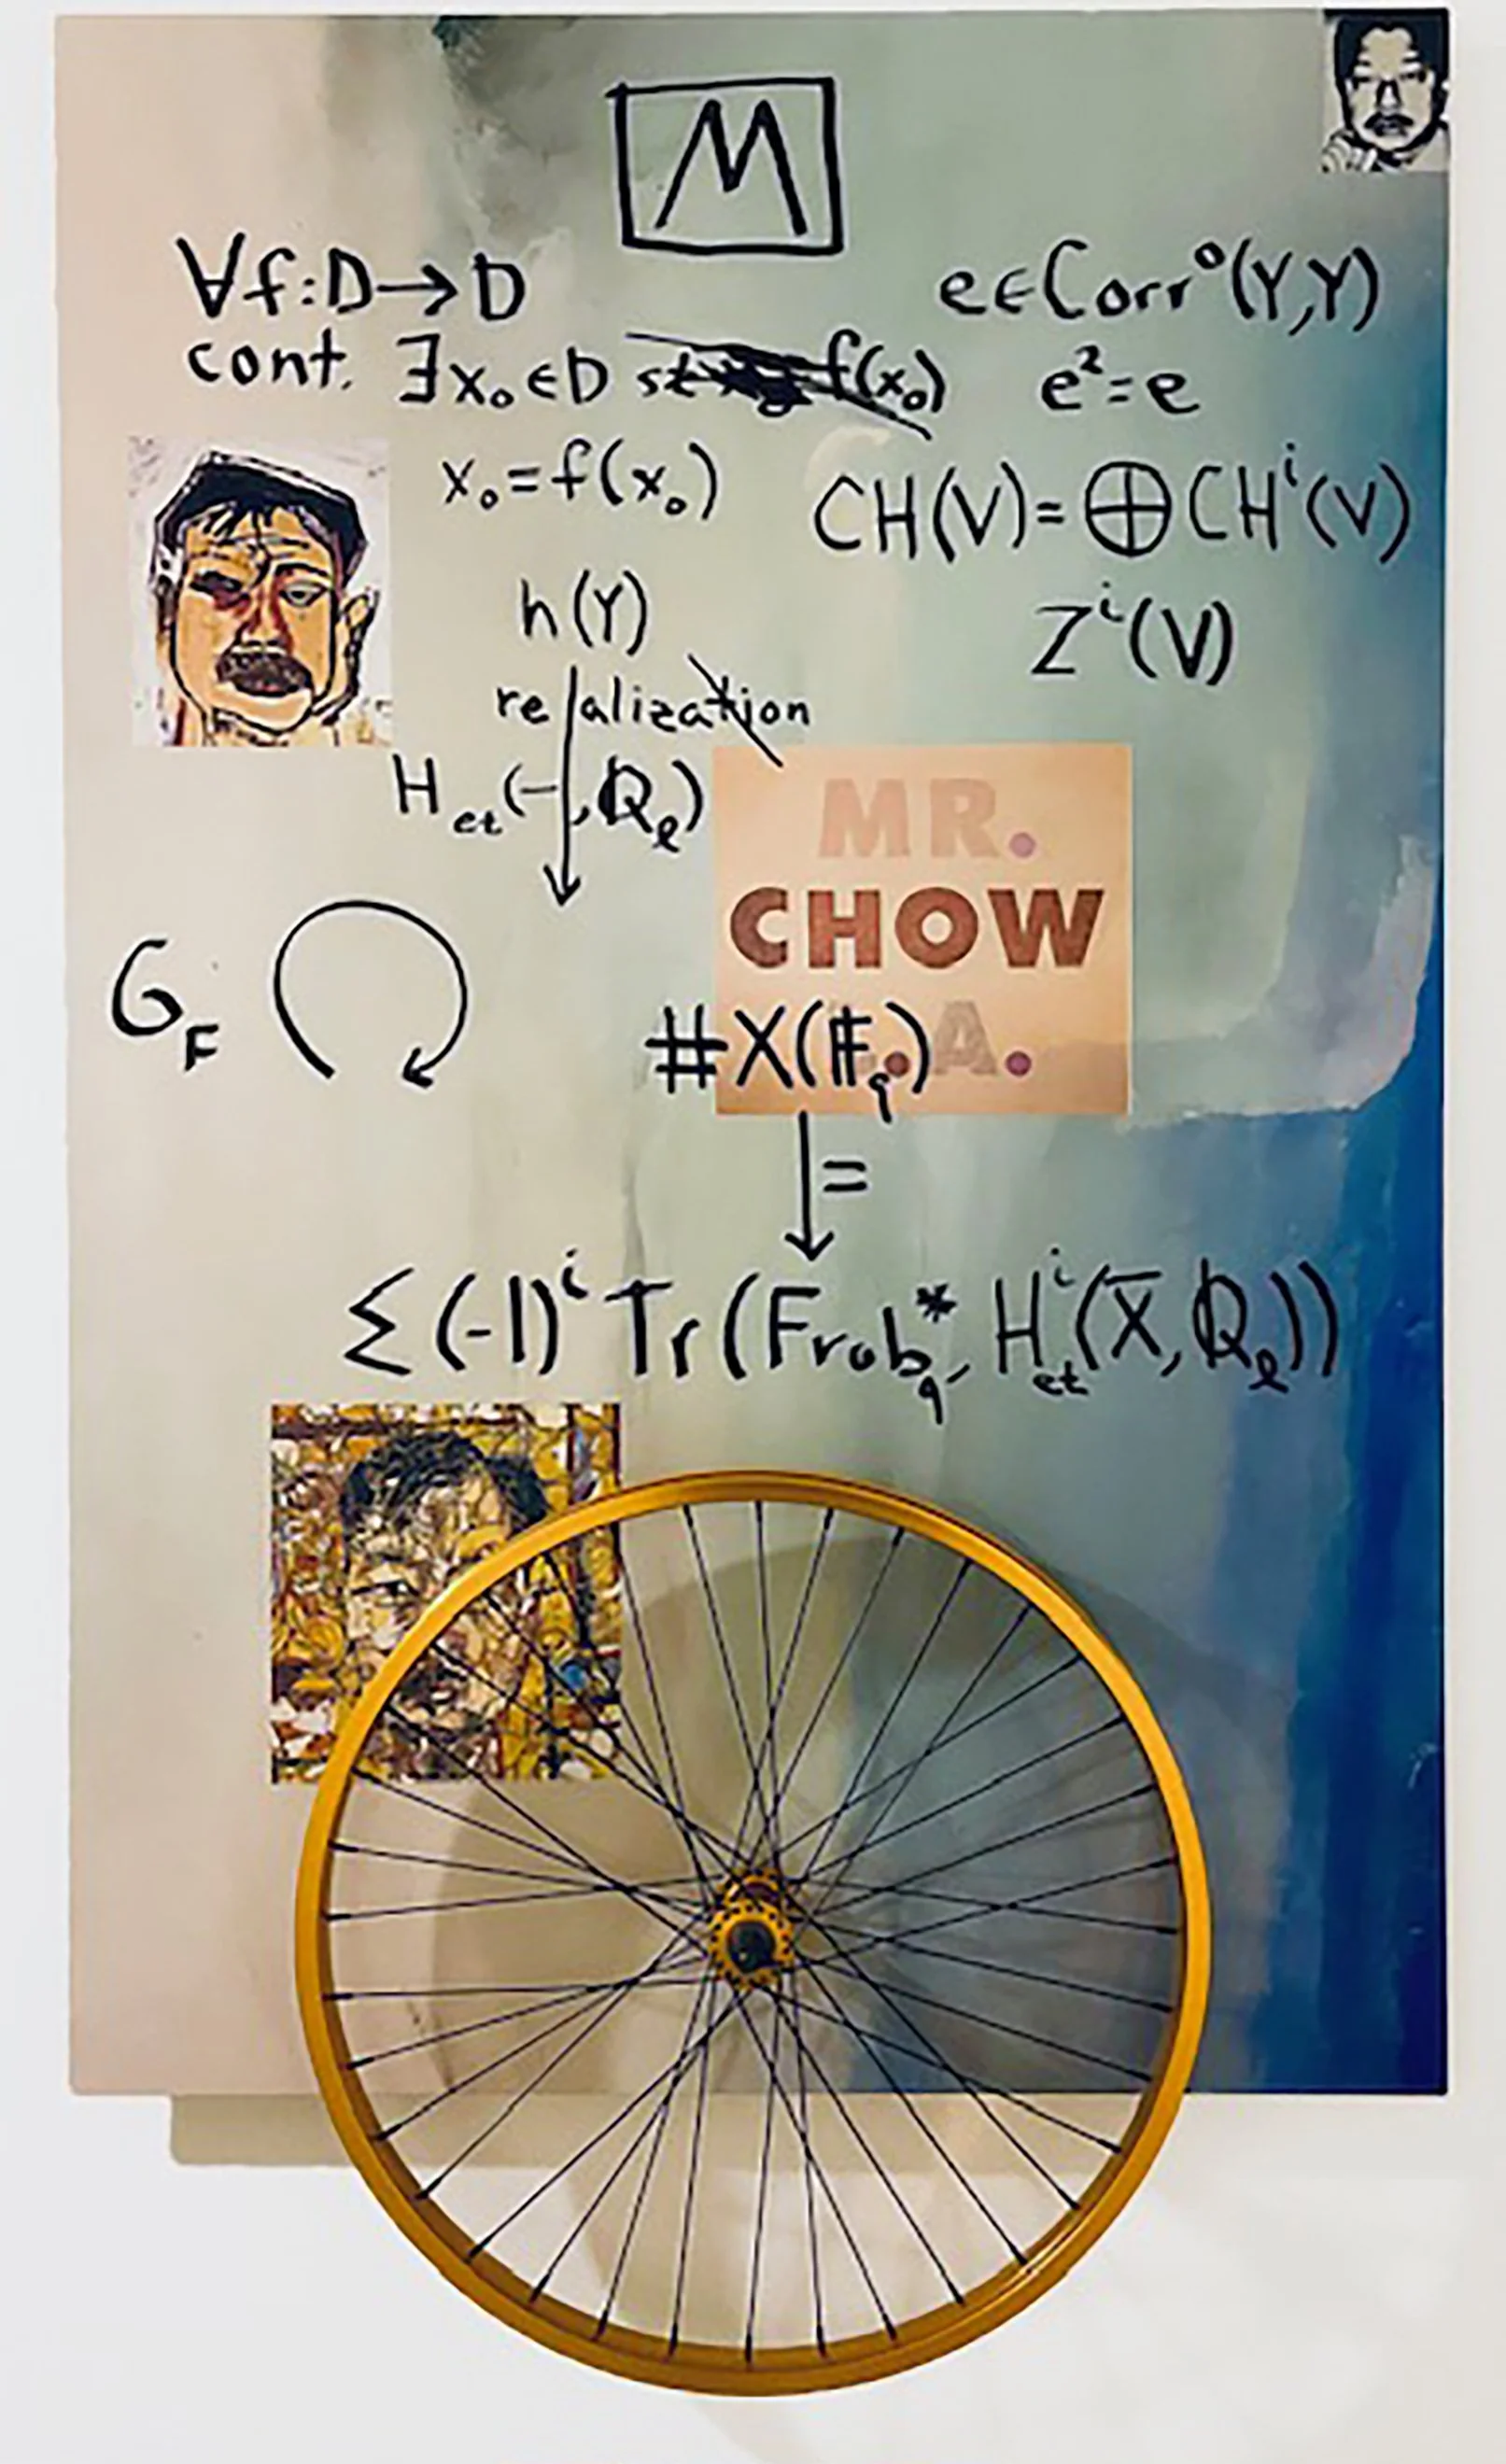 M
∀f:D→D
cont. ∃x₀∈D f(x₀)
x₀=f(x₀)
e∈Corr⁰(Y,Y)
e²=e
CH(V)=⊕CHⁱ(V)
Zⁱ(V)
h(Y)
realization
H_et(-,ℚ_ℓ)
MR.
CHOW
A.
G_F
#X(𝔽_q)
=
Σ(-1)ⁱTr(Frob_q*, Hⁱ_et(X̄,ℚ_ℓ))